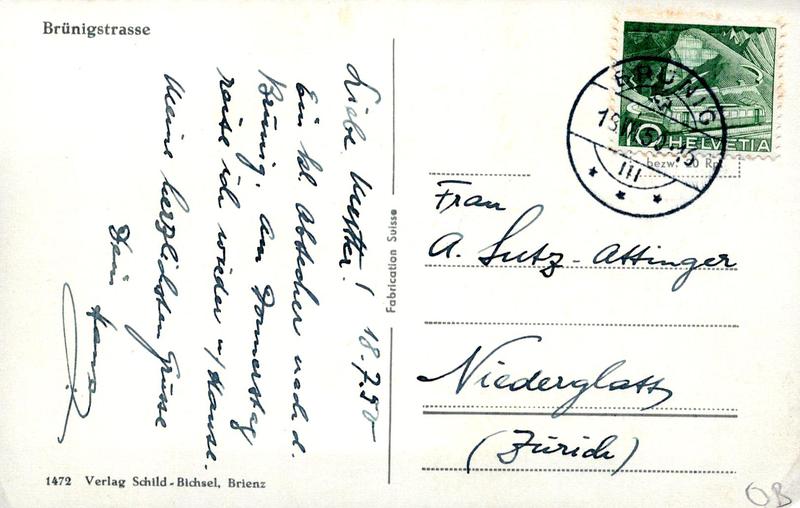 Brünigstrasse
Liebe Mutter! 18.7.50
Ein kl. Abstecher nach d.
Brünig. Am Donnerstag
reise ich wieder n/Hause.
Meine herzlichsten Grüsse
Dein Hans
1472 Verlag Schild-Bichsel, Brienz
Fabrication Suisse
BRÜNIG
18.VII.50
III
10 HELVETIA
bezw. 20 Rp.
Frau
A. Lutz-Attinger
Niederglatt
(Zürich)
OB